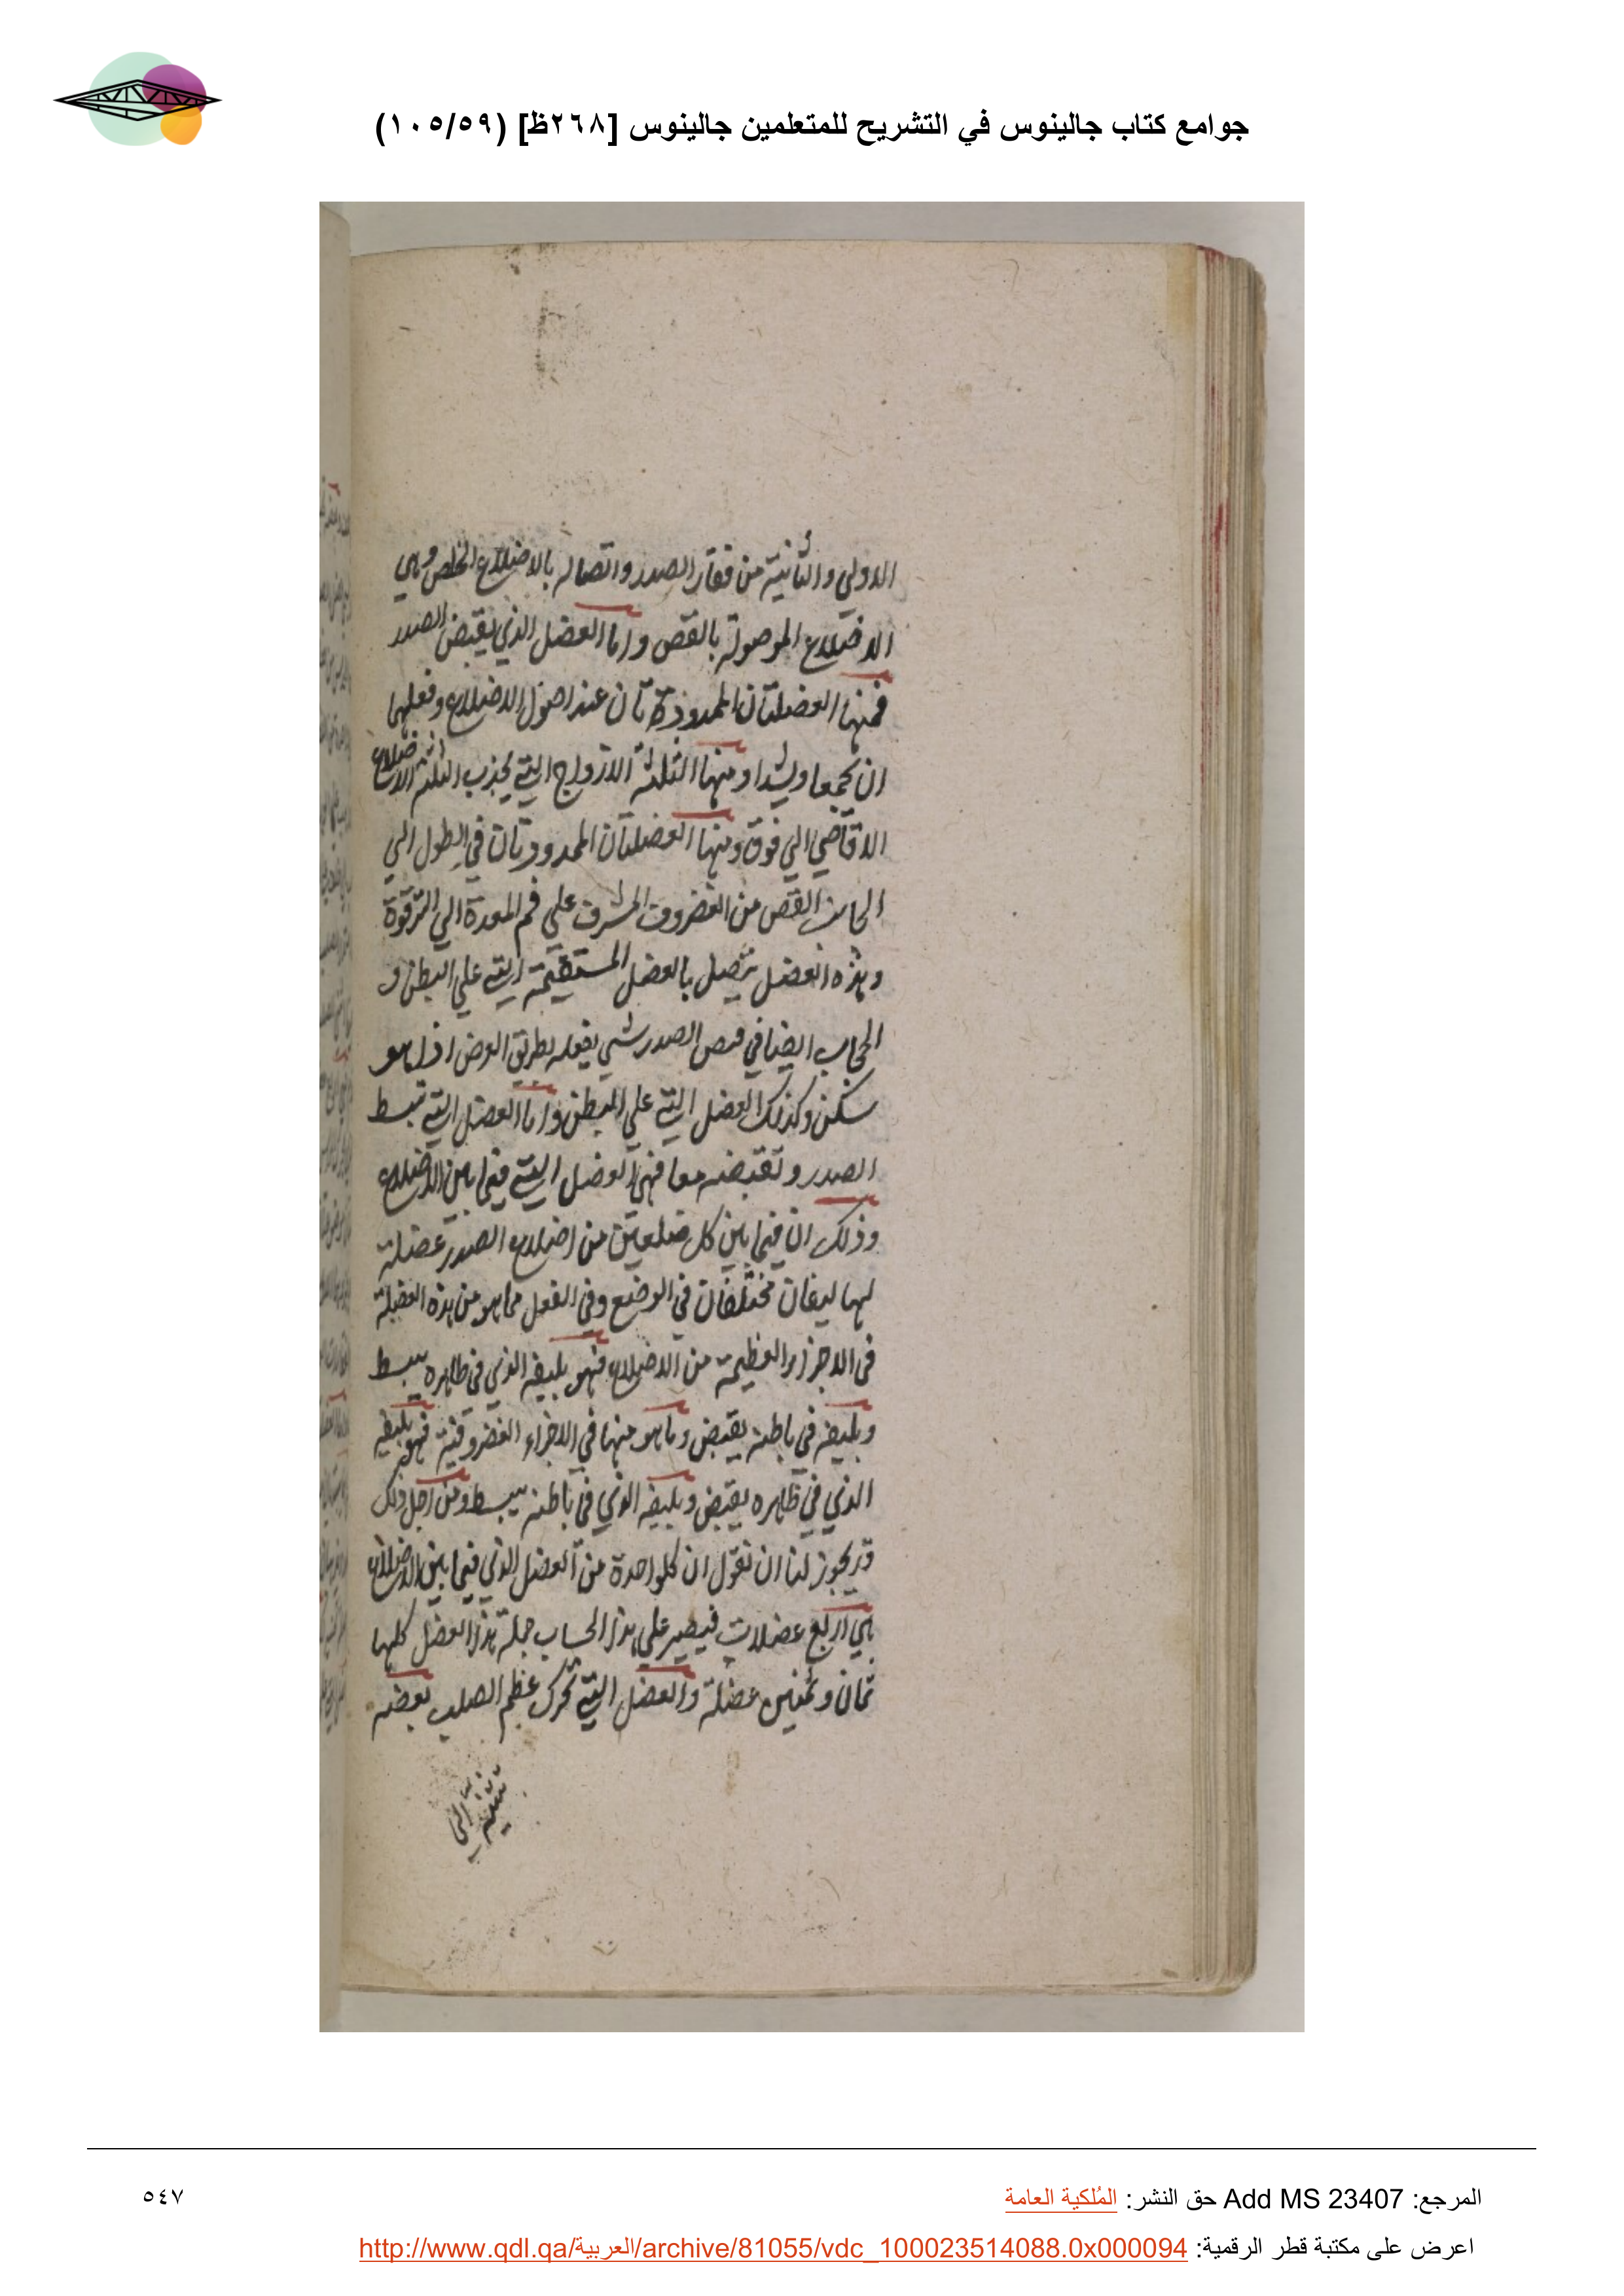 جوامع كتاب جالينوس في التشريح للمتعلمين جالينوس [٢٦٨ظ] (١٠٥/٥٩)
الاولي والثانية من فقار الصدر واتصاله بالاضلاع الخلص وهي
الاضلاع الموصولة بالقص واما العضل الذي يقبض الصدر
فمنها العضلتان الممدودتان عند اصول الاضلاع وفعلهما
ان يجمعا ويشدا ومنها الثلثة الازواج التي يجذب الثلثة الاضلاع
الاقاضي الي فوق ومنها العضلتان الممدودتان في الطول الي
الجانب القص من الغضروف المشرف علي فم المعدة الي الترقوة
وهذه العضل يتصل بالعضل المستقيمة التي علي البطن و
الحجاب ايضا في قبص الصدر شي يفعله بطريق العرض اذا هو
سكن وكذلك العضل التي علي البطن واما العضل التي تبسط
الصدر وتقبضه معا فهي العضل التي فيما بين الاضلاع
وذلك ان فيما بين كل ضلعين من اضلاع الصدر عضلة
لها ليفان مختلفان في الوضع وفي الفعل مما هو من هذه العضلة
في الاجزاء العظيمة من الاضلاع فهو بليفه الذي في ظاهره يبسط
وبليفه في باطنه يقبض وما هو منها في الاجزاء الغضروفية فهو بليفه
الذي في ظاهره يقبض وبليفه الذي في باطنه يبسط ومن اجل ذلك
قد يجوز لنا ان نقول ان كلواحدة من العضل الذي فيما بين الاضلاع
هي اربع عضلات فيصير علي هذا الحساب جملة هذا العضل كلها
ثمان وثمنين عضلة والعضل التي تحرك عظم الصلب بعضه
المرجع: Add MS 23407 حق النشر: المُلكية العامة
٥٤٧
اعرض على مكتبة قطر الرقمية: http://www.qdl.qa/العربية/archive/81055/vdc_100023514088.0x000094